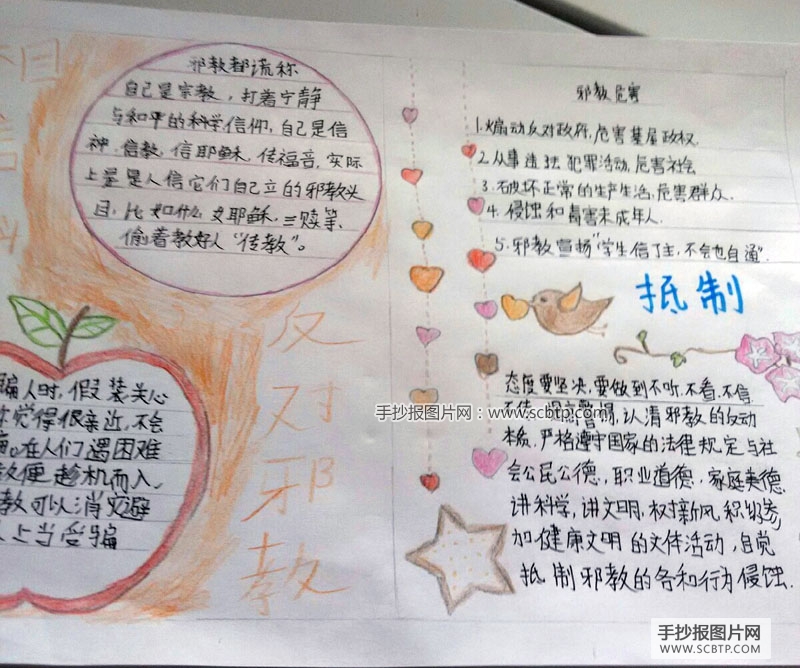 邪教都谎称
自己是宗教，打着宁静
与和平的科学信仰，自己是信
神、信教，信耶稣，传福音，实际
上是人信它们自己立的邪教头
目，比如什么耶稣，三赎等，
偷着教好人“传教”。
反对邪教
骗人时，假装关心
觉得很亲近，不会
在人们遇困难
便趁机而入，
教可以消灾避
上当受骗
邪教危害
1.煽动反对政府，危害基层政权.
2.从事违法犯罪活动，危害社会
3.破坏正常的生产生活，危害群众.
4.侵蚀和毒害未成年人.
5.邪教宣扬“学生信了主，不会也自通”.
抵制
态度要坚决，要做到不听、不看、不信
认清邪教的反动
本质，严格遵守国家的法律规定与社
会公民公德，职业道德，家庭美德，
讲科学，讲文明，树新风积极参
加健康文明的文体活动，自觉
抵制邪教的各种行为侵蚀.
手抄报图片网：www.scbtp.com
手抄报图片网
WWW.SCBTP.COM